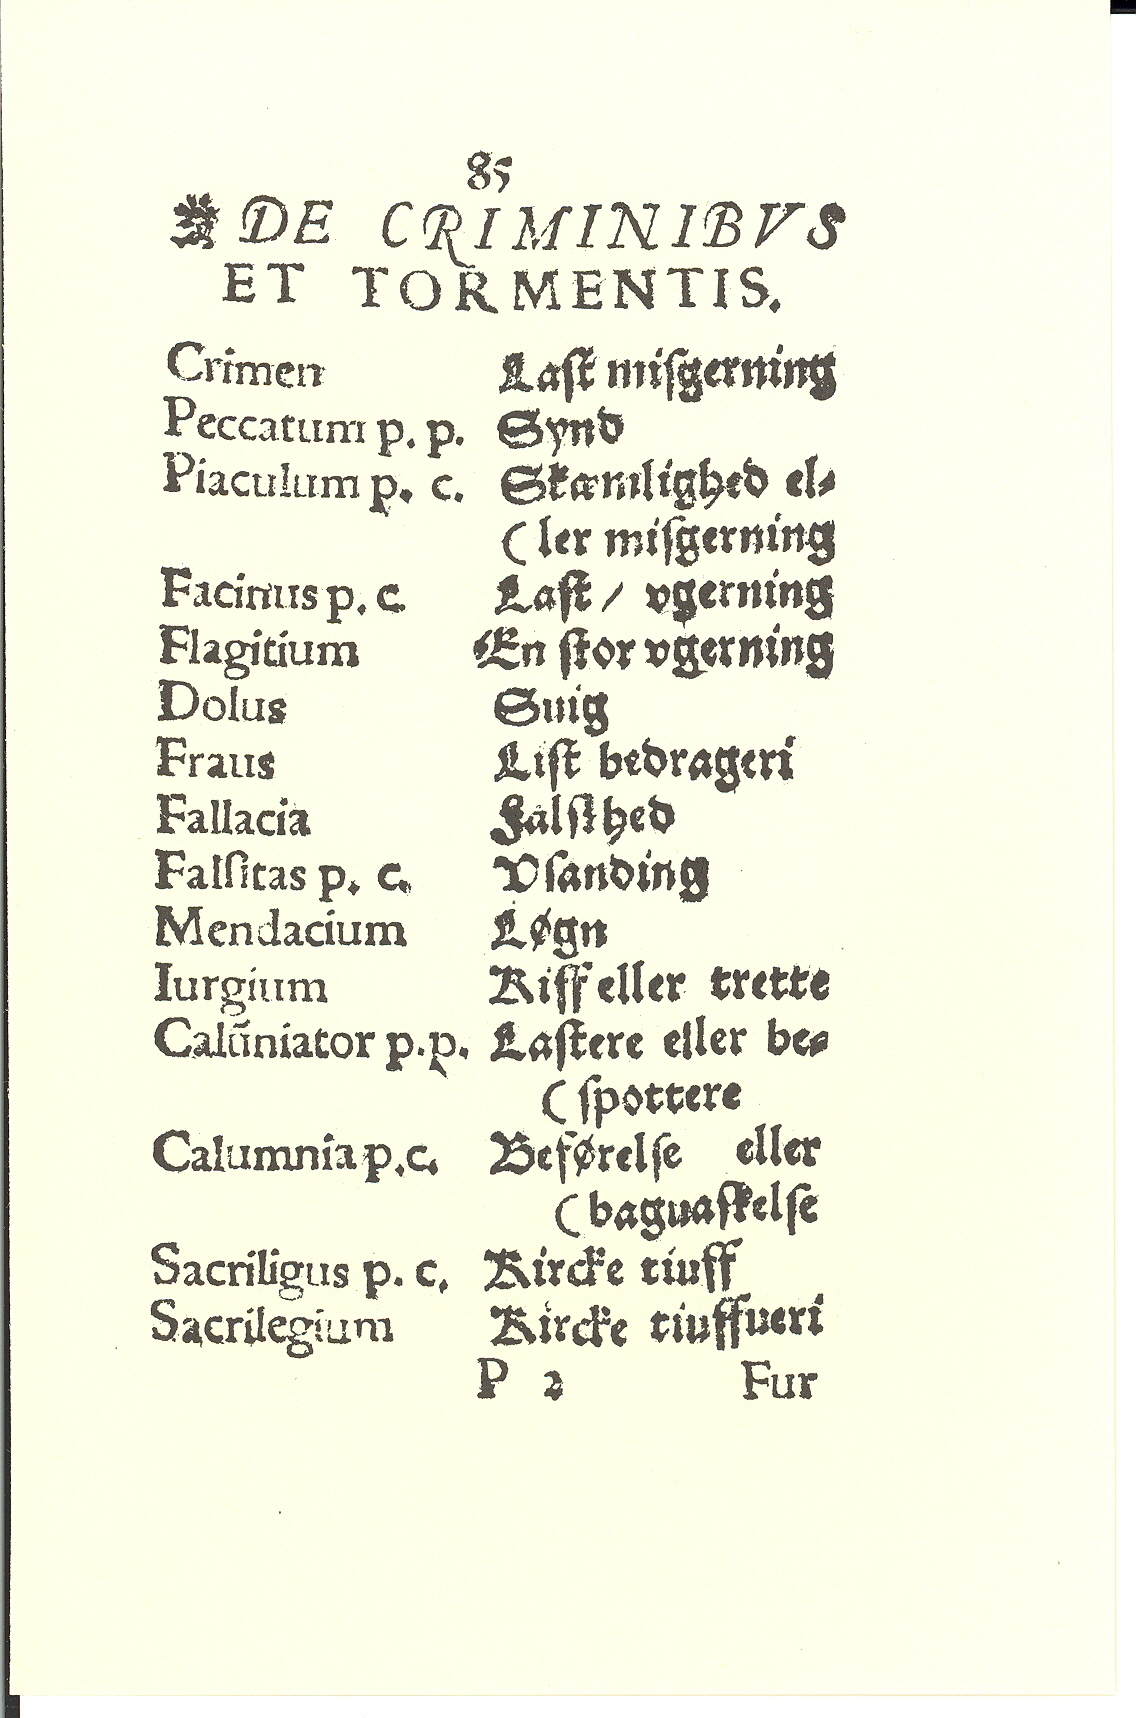 85
DE CRIMINIBVS
ET TORMENTIS.
Crimen Laſt miſgerning
Peccatum p. p. Synd
Piaculum p. c. Skæmlighed el⸗
(ler miſgerning
Facinus p. c. Laſt / vgerning
Flagitium En ſtor vgerning
Dolus Suig
Fraus Liſt bedrageri
Fallacia Falſkhed
Falſitas p. c. Vſanding
Mendacium Løgn
Iurgium Kiff eller trette
Calūniator p.p. Laſtere eller be⸗
(ſpottere
Calumnia p.c. Beførelſe eller
(baguaſkelſe
Sacriligus p. c. Kircke tiuff
Sacrilegium Kircke tiuffueri
P 2 Fur